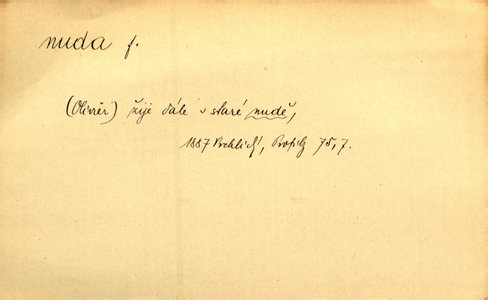 nuda f.
(Olivier) žije dále v staré nudě,
1887 Vrchlický, Profily 75, 7.